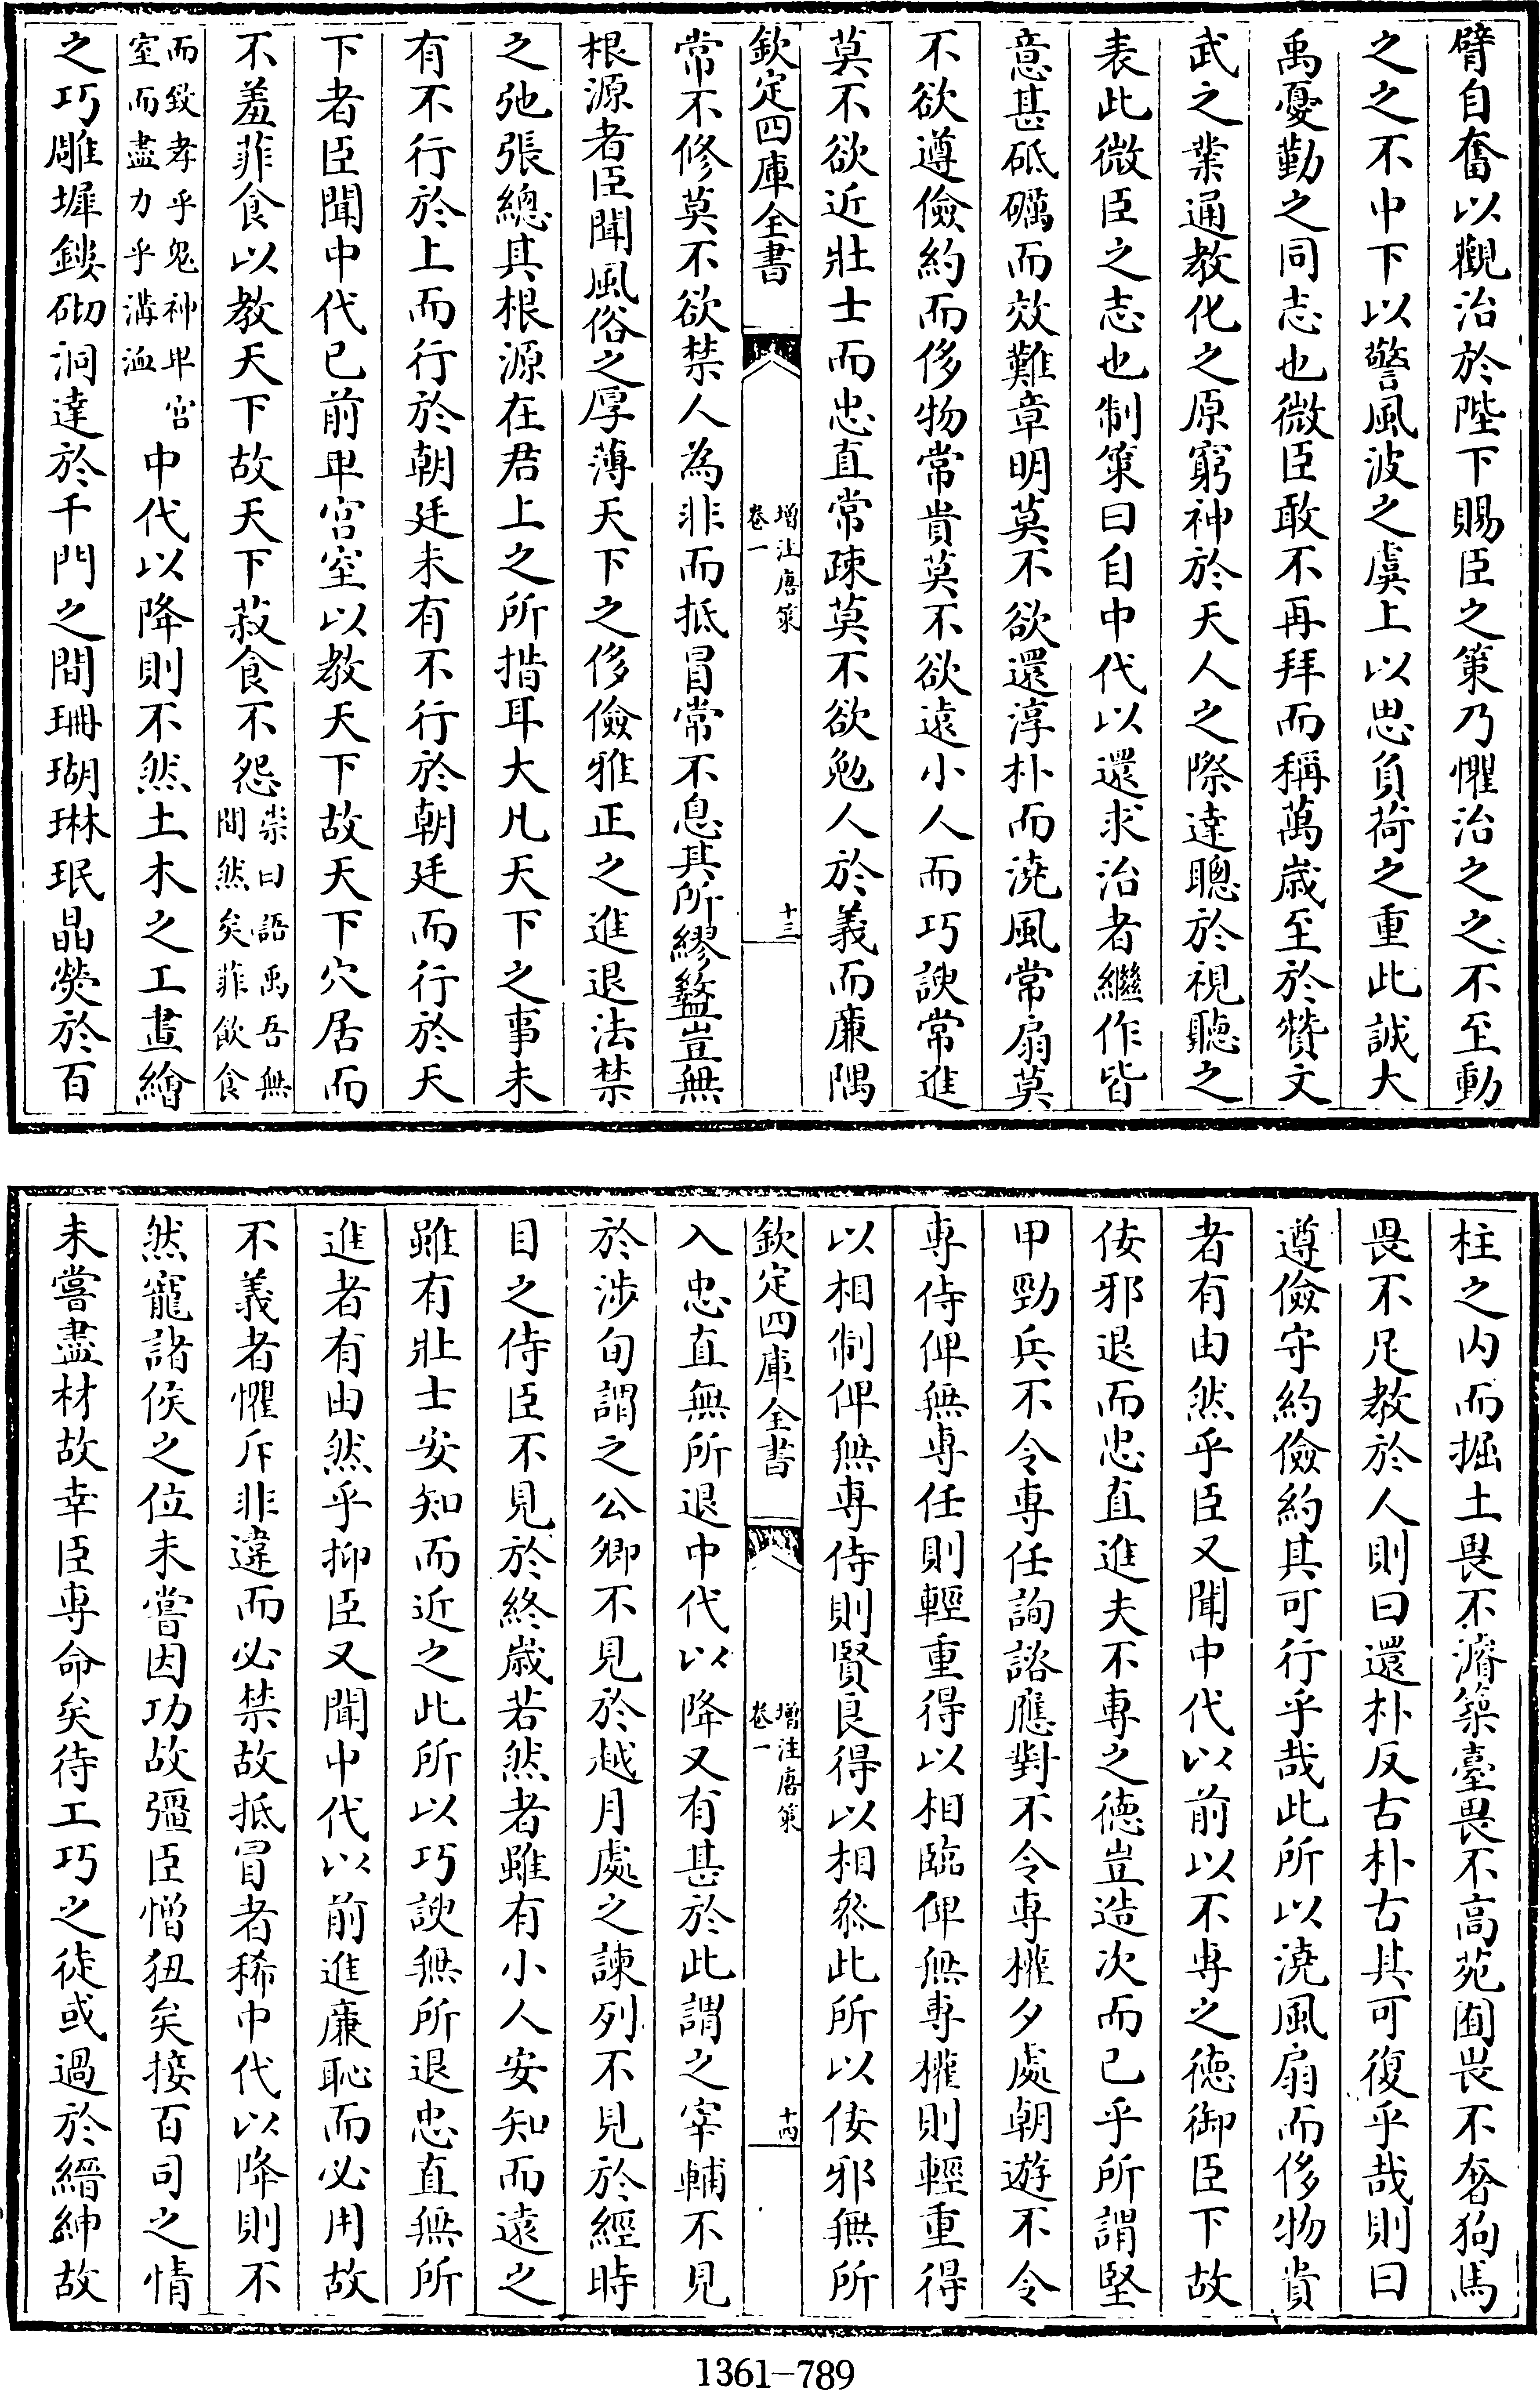 臂自奮以觀治於陛下賜臣之策乃懼治之之不至動
之之不中下以警風波之虞上以思負荷之重此誠大
禹憂勤之同志也微臣敢不再拜而稱萬歲至於贊文
武之業通教化之原窮神於天人之際達聰於視聽之
表此微臣之志也制策曰自中代以還求治者繼作皆
意甚砥礪而效難章明莫不欲還淳朴而澆風常扇莫
不欲遵儉約而侈物常貴莫不欲遠小人而巧諛常進
莫不欲近壯士而忠直常疎莫不欲勉人於義而廉隅
欽定四庫全書
增注唐策
卷一
十三
常不修莫不欲禁人為非而抵冒常不息其所繆盭豈無
根源者臣聞風俗之厚薄天下之侈儉雅正之進退法禁
之弛張總其根源在君上之所揩耳大凡天下之事未
有不行於上而行於朝廷未有不行於朝廷而行於天
下者臣聞中代已前卑宫室以教天下故天下穴居而
不羞菲食以教天下故天下菽食不怨
崇曰語禹吾無
間然矣菲飲食
而致孝乎鬼神卑宫
室而盡力乎溝洫
中代以降則不然土木之工畫繪
之巧雕墀鏤砌洞達於千門之間珊瑚琳珉晶熒於百
柱之内而掘土畏不濬築臺畏不高苑囿畏不奢狗馬
畏不足教於人則曰還朴反古朴古其可復乎哉則曰
遵儉守約儉約其可行乎哉此所以澆風扇而侈物貴
者有由然乎臣又聞中代以前以不專之德御臣下故
佞邪退而忠直進夫不專之德豈造次而已乎所謂堅
甲勁兵不令專任詢諮應對不令專權夕處朝遊不令
專侍俾無專任則輕重得以相臨俾無專權則輕重得
以相制俾無專侍則賢良得以相叅此所以佞邪無所
欽定四庫全書
增注唐策
卷一
十四
入忠直無所退中代以降又有甚於此謂之宰輔不見
於涉旬謂之公卿不見於越月處之諫列不見於經時
目之侍臣不見於終歲若然者雖有小人安知而遠之
雖有壯士安知而近之此所以巧諛無所退忠直無所
進者有由然乎抑臣又聞中代以前進廉恥而必用故
不義者懼斥非違而必禁故抵冒者稀中代以降則不
然寵諸侯之位未嘗因功故彊臣憎狃矣接百司之情
未嘗盡材故幸臣專命矣待工巧之徒或過於縉紳故
1361-789